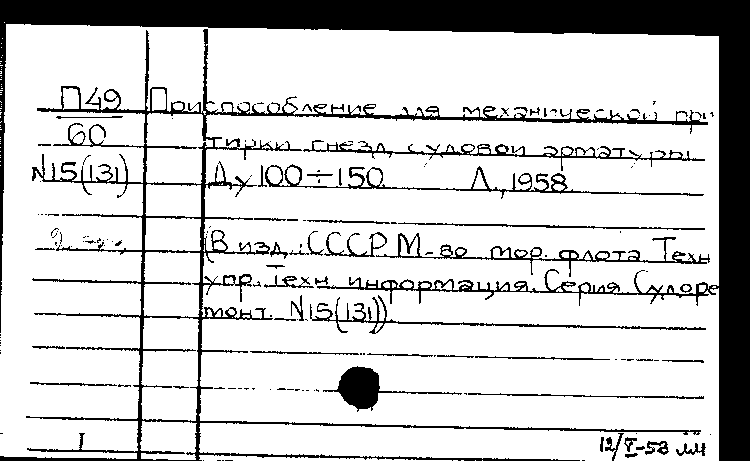 П49
60
N15(131)
Приспособление для механической при
тирки гнезд судовой арматуры
Ду 100÷150. Л., 1958.
(В изд.: СССР. М-во мор. флота. Техн.
упр. Техн. информация. Серия Судоре
монт. N15(131)).
I
12/V-58